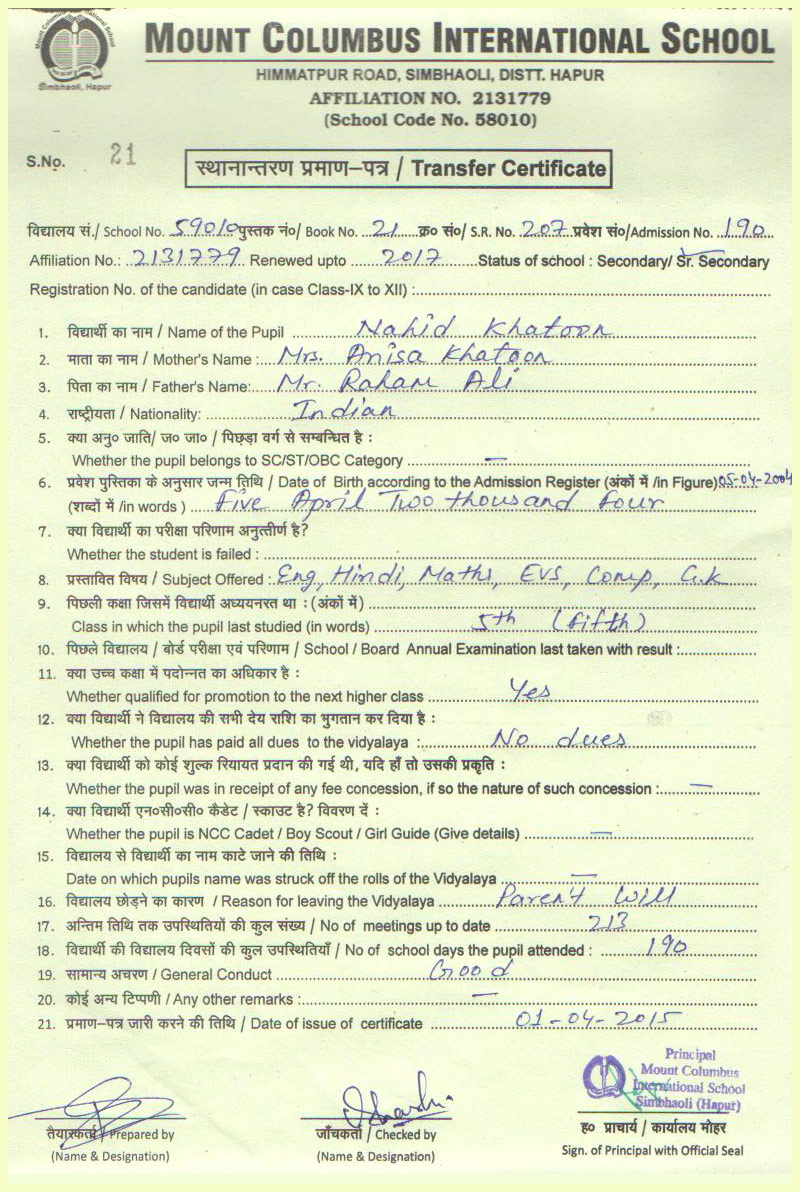 Mount Columbus International School
Simbhaoli, Hapur
MOUNT COLUMBUS INTERNATIONAL SCHOOL
HIMMATPUR ROAD, SIMBHAOLI, DISTT. HAPUR
AFFILIATION NO. 2131779
(School Code No. 58010)
S.No. 21
स्थानान्तरण प्रमाण–पत्र / Transfer Certificate
विद्यालय सं./ School No. 59010 पुस्तक नं०/ Book No. 21 क्र० सं०/ S.R. No. 207 प्रवेश सं०/Admission No. 190
Affiliation No.: 2131779 Renewed upto 2017 Status of school : Secondary/ Sr. Secondary
Registration No. of the candidate (in case Class-IX to XII) :
1. विद्यार्थी का नाम / Name of the Pupil Nahid Khatoon
2. माता का नाम / Mother's Name : Mrs. Anisa Khatoon
3. पिता का नाम / Father's Name: Mr. Raham Ali
4. राष्ट्रीयता / Nationality: Indian
5. क्या अनु० जाति/ ज० जा० / पिछड़ा वर्ग से सम्बन्धित है :
Whether the pupil belongs to SC/ST/OBC Category —
6. प्रवेश पुस्तिका के अनुसार जन्म तिथि / Date of Birth according to the Admission Register (अंकों में /in Figure) 05-04-2004
(शब्दों में /in words ) Five April Two thousand four
7. क्या विद्यार्थी का परीक्षा परिणाम अनुत्तीर्ण है?
Whether the student is failed :
8. प्रस्तावित विषय / Subject Offered : Eng, Hindi, Maths, EVS, Comp, G.k
9. पिछली कक्षा जिसमें विद्यार्थी अध्ययनरत था : (अंकों में)
Class in which the pupil last studied (in words) 5th (fifth)
10. पिछले विद्यालय / बोर्ड परीक्षा एवं परिणाम / School / Board Annual Examination last taken with result :
11. क्या उच्च कक्षा में पदोन्नत का अधिकार है :
Whether qualified for promotion to the next higher class Yes
12. क्या विद्यार्थी ने विद्यालय की सभी देय राशि का भुगतान कर दिया है :
Whether the pupil has paid all dues to the vidyalaya : No dues
13. क्या विद्यार्थी को कोई शुल्क रियायत प्रदान की गई थी, यदि हाँ तो उसकी प्रकृति :
Whether the pupil was in receipt of any fee concession, if so the nature of such concession : —
14. क्या विद्यार्थी एन०सी०सी० कैडेट / स्काउट है? विवरण दें :
Whether the pupil is NCC Cadet / Boy Scout / Girl Guide (Give details) —
15. विद्यालय से विद्यार्थी का नाम काटे जाने की तिथि :
Date on which pupils name was struck off the rolls of the Vidyalaya —
16. विद्यालय छोड़ने का कारण / Reason for leaving the Vidyalaya Parent Will
17. अन्तिम तिथि तक उपस्थितियों की कुल संख्य / No of meetings up to date 213
18. विद्यार्थी की विद्यालय दिवसों की कुल उपस्थितियाँ / No of school days the pupil attended : 190
19. सामान्य अचरण / General Conduct Good
20. कोई अन्य टिप्पणी / Any other remarks : —
21. प्रमाण–पत्र जारी करने की तिथि / Date of issue of certificate 01-04-2015
Principal
Mount Columbus
International School
Simbhaoli (Hapur)
तैयारकर्ता / Prepared by
(Name & Designation)
जाँचकर्ता / Checked by
(Name & Designation)
ह० प्राचार्य / कार्यालय मोहर
Sign. of Principal with Official Seal